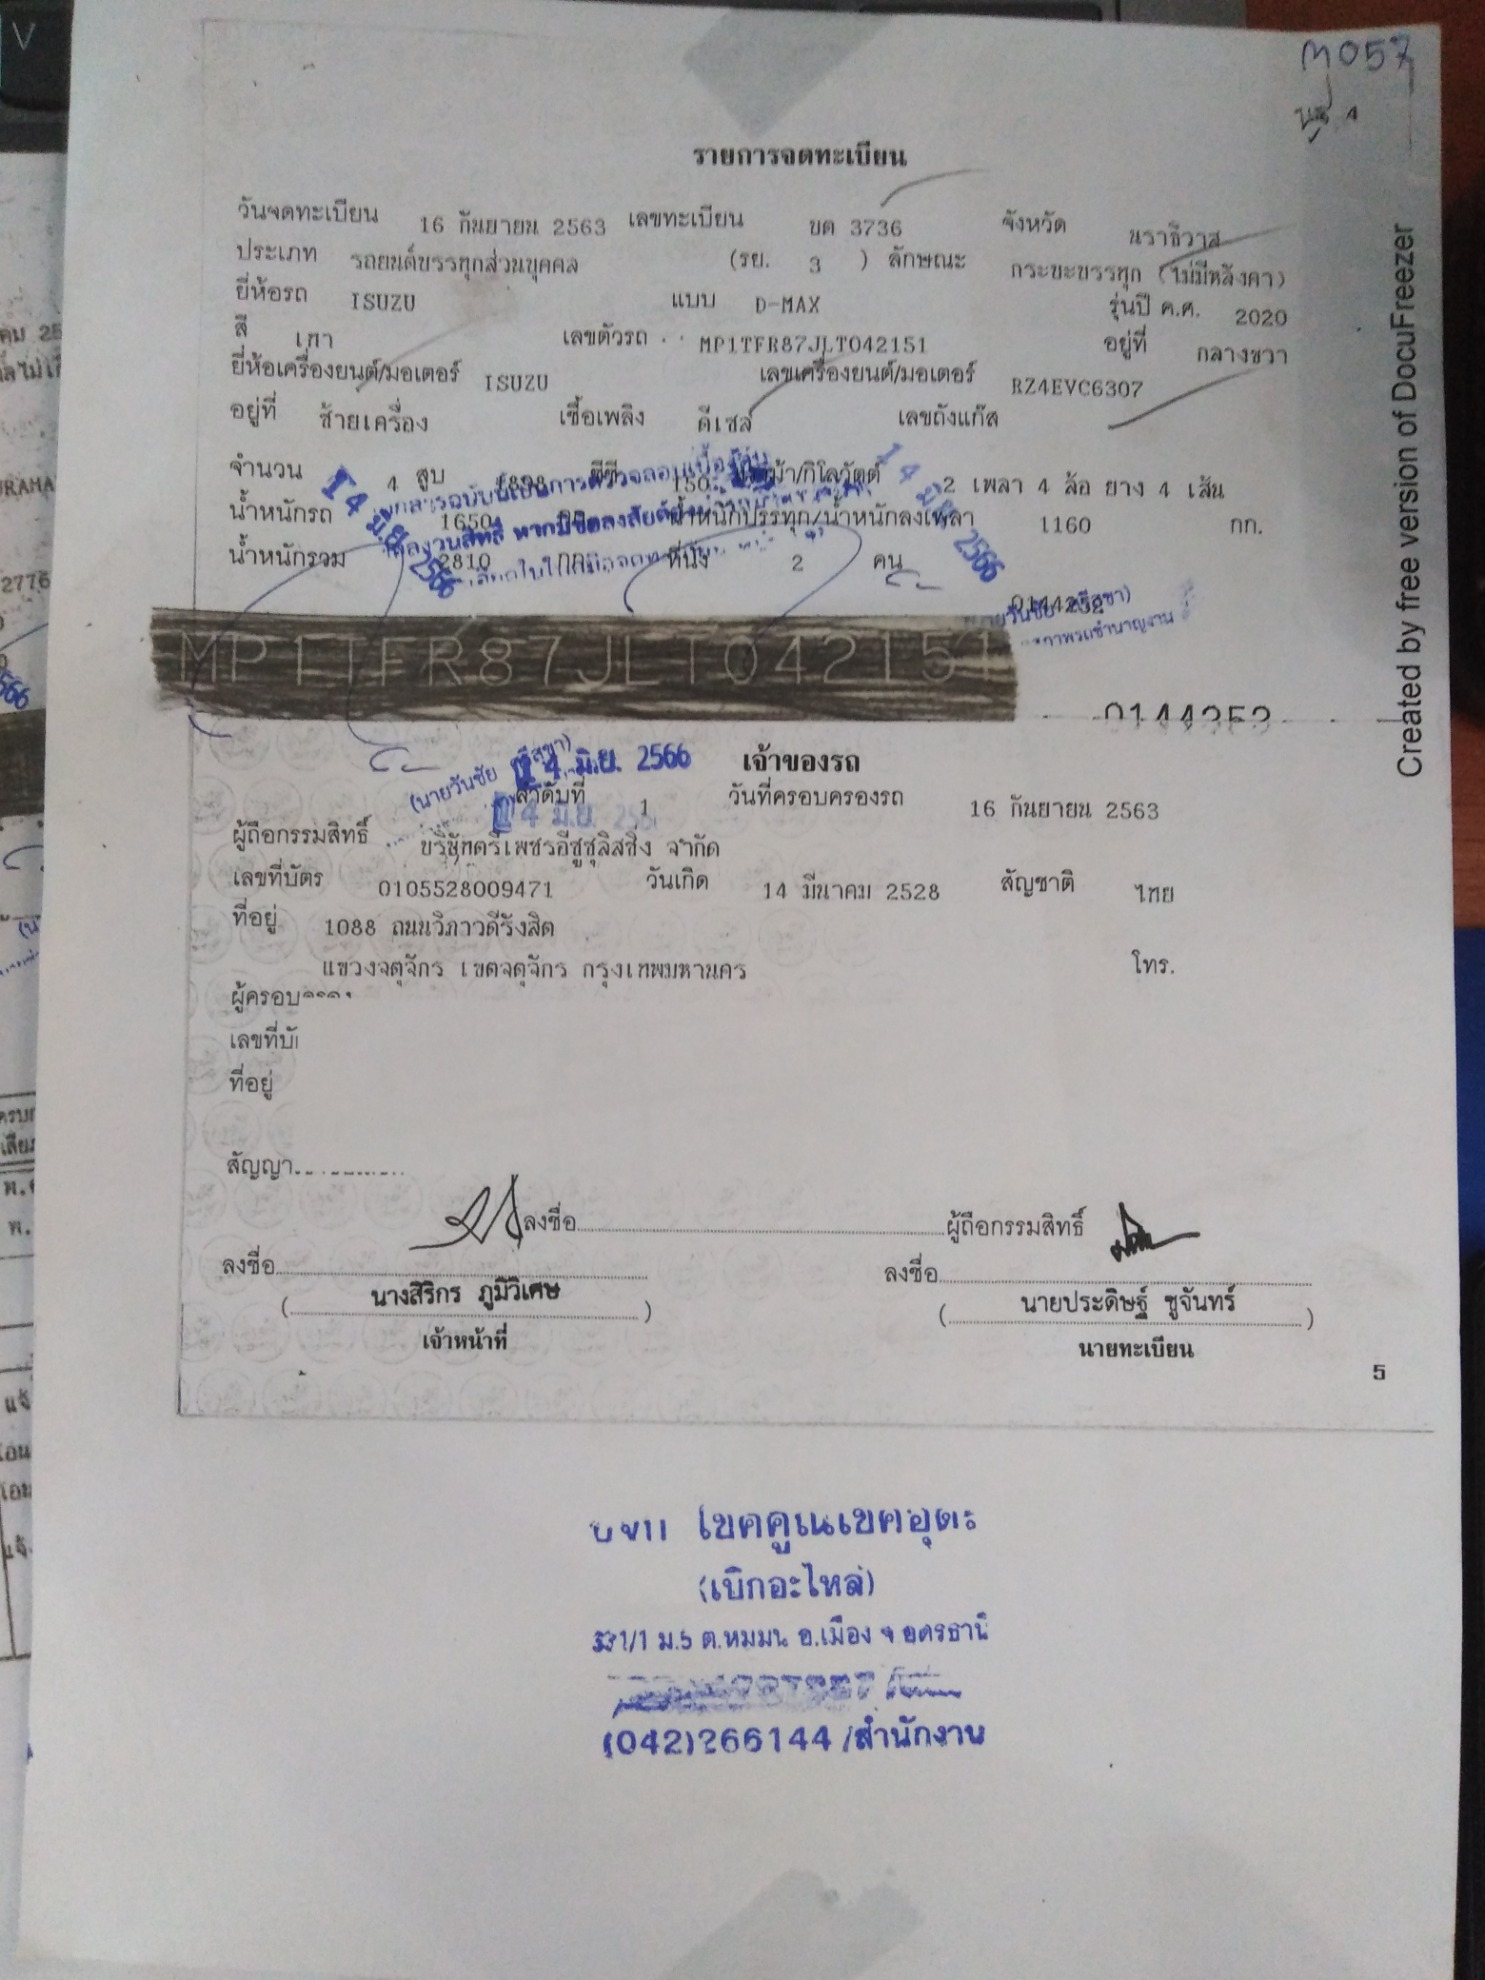 M057
4
รายการจดทะเบียน
วันจดทะเบียน 16 กันยายน 2563 เลขทะเบียน บต 3736 จังหวัด นราธิวาส
ประเภท รถยนต์บรรทุกส่วนบุคคล (รย. 3 ) ลักษณะ กระบะบรรทุก (ไม่มีหลังคา)
ยี่ห้อรถ ISUZU แบบ D-MAX รุ่นปี ค.ศ. 2020
สี เทา เลขตัวรถ MP1TFR87JLT042151 อยู่ที่ กลางขวา
ยี่ห้อเครื่องยนต์/มอเตอร์ ISUZU เลขเครื่องยนต์/มอเตอร์ RZ4EVC6307
อยู่ที่ ซ้ายเครื่อง เชื้อเพลิง ดีเซล เลขถังแก๊ส
จำนวน 4 สูบ 1898 ซีซี 150 แรงม้า/กิโลวัตต์ 2 เพลา 4 ล้อ ยาง 4 เส้น
น้ำหนักรถ 1650 กก. น้ำหนักบรรทุก/น้ำหนักลงเพลา 1160 กก.
น้ำหนักรวม 2810 กก. ที่นั่ง 2 คน
14 มิ.ย. 2566
14 มิ.ย. 2566
0144252
MP1TFR87JLT042151
0144253
14 มิ.ย. 2566 เจ้าของรถ
(นายวันชัย
ลำดับที่ 1 วันที่ครอบครองรถ 16 กันยายน 2563
14 มิ.ย.
ผู้ถือกรรมสิทธิ์ บริษัทตรีเพชรอีซูซุลิสซิ่ง จำกัด
เลขที่บัตร 0105528009471 วันเกิด 14 มีนาคม 2528 สัญชาติ ไทย
ที่อยู่ 1088 ถนนวิภาวดีรังสิต
แขวงจตุจักร เขตจตุจักร กรุงเทพมหานคร โทร.
ผู้ครอบ
เลขที่บั
ที่อยู่
สัญญา
ลงชื่อ ผู้ถือกรรมสิทธิ์
ลงชื่อ ลงชื่อ
(นางสิริกร ภูมิวิเศษ) (นายประดิษฐ์ ชูจันทร์)
เจ้าหน้าที่ นายทะเบียน
5
(เบิกอะไหล่)
ม.5 ต.หมูม่น อ.เมือง จ.อุดรธานี
(042)266144/สำนักงาน
Created by free version of DocuFreezer